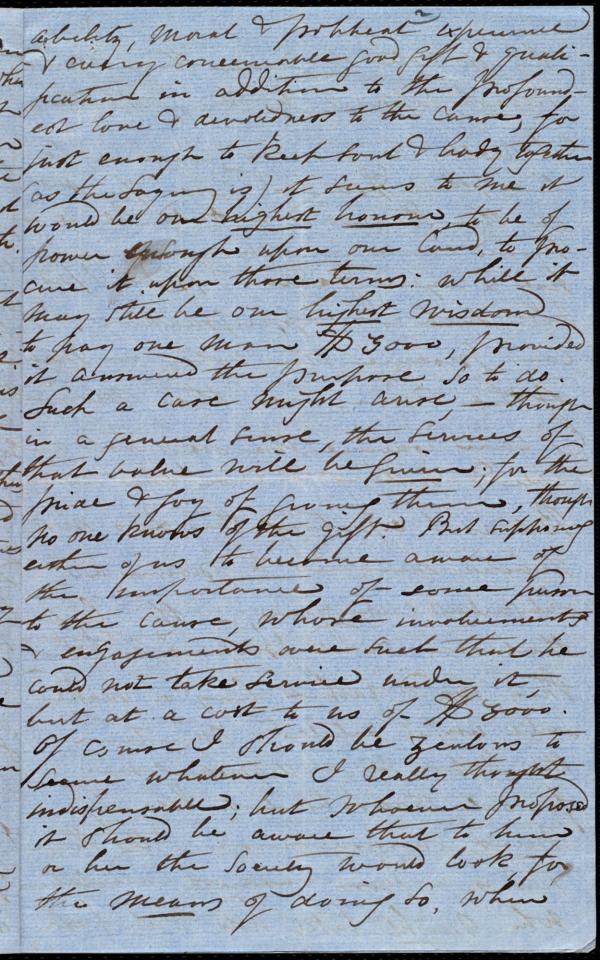 ability, moral & political experience
& every conceivable good gift & quali-
fication in addition to the profound-
est love & devotedness to the cause, for
just enough to keep soul & body together
(as the saying is) it seems to me it
would be our highest honour, to be of
power enough upon our Land, to pro-
cure it upon those terms: while it
may still be our highest wisdom
to pay one man $3000, provided
it answered the purpose so to do.
Such a case might arise, — though
in a general sense, the services of
that value will be given; for the
pride & joy of giving them, though
no one knows of the gift. But supposing
either of us to become aware of
the importance of some person
to the cause, whose involvements
& engagements were such that he
could not take service under it,
but at a cost to us of $3000.
Of course I should be zealous to
secure whatever I really thought
indispensable; but whoever proposed
it should be aware that to him
or her the Society would look, for
the means of doing so, when